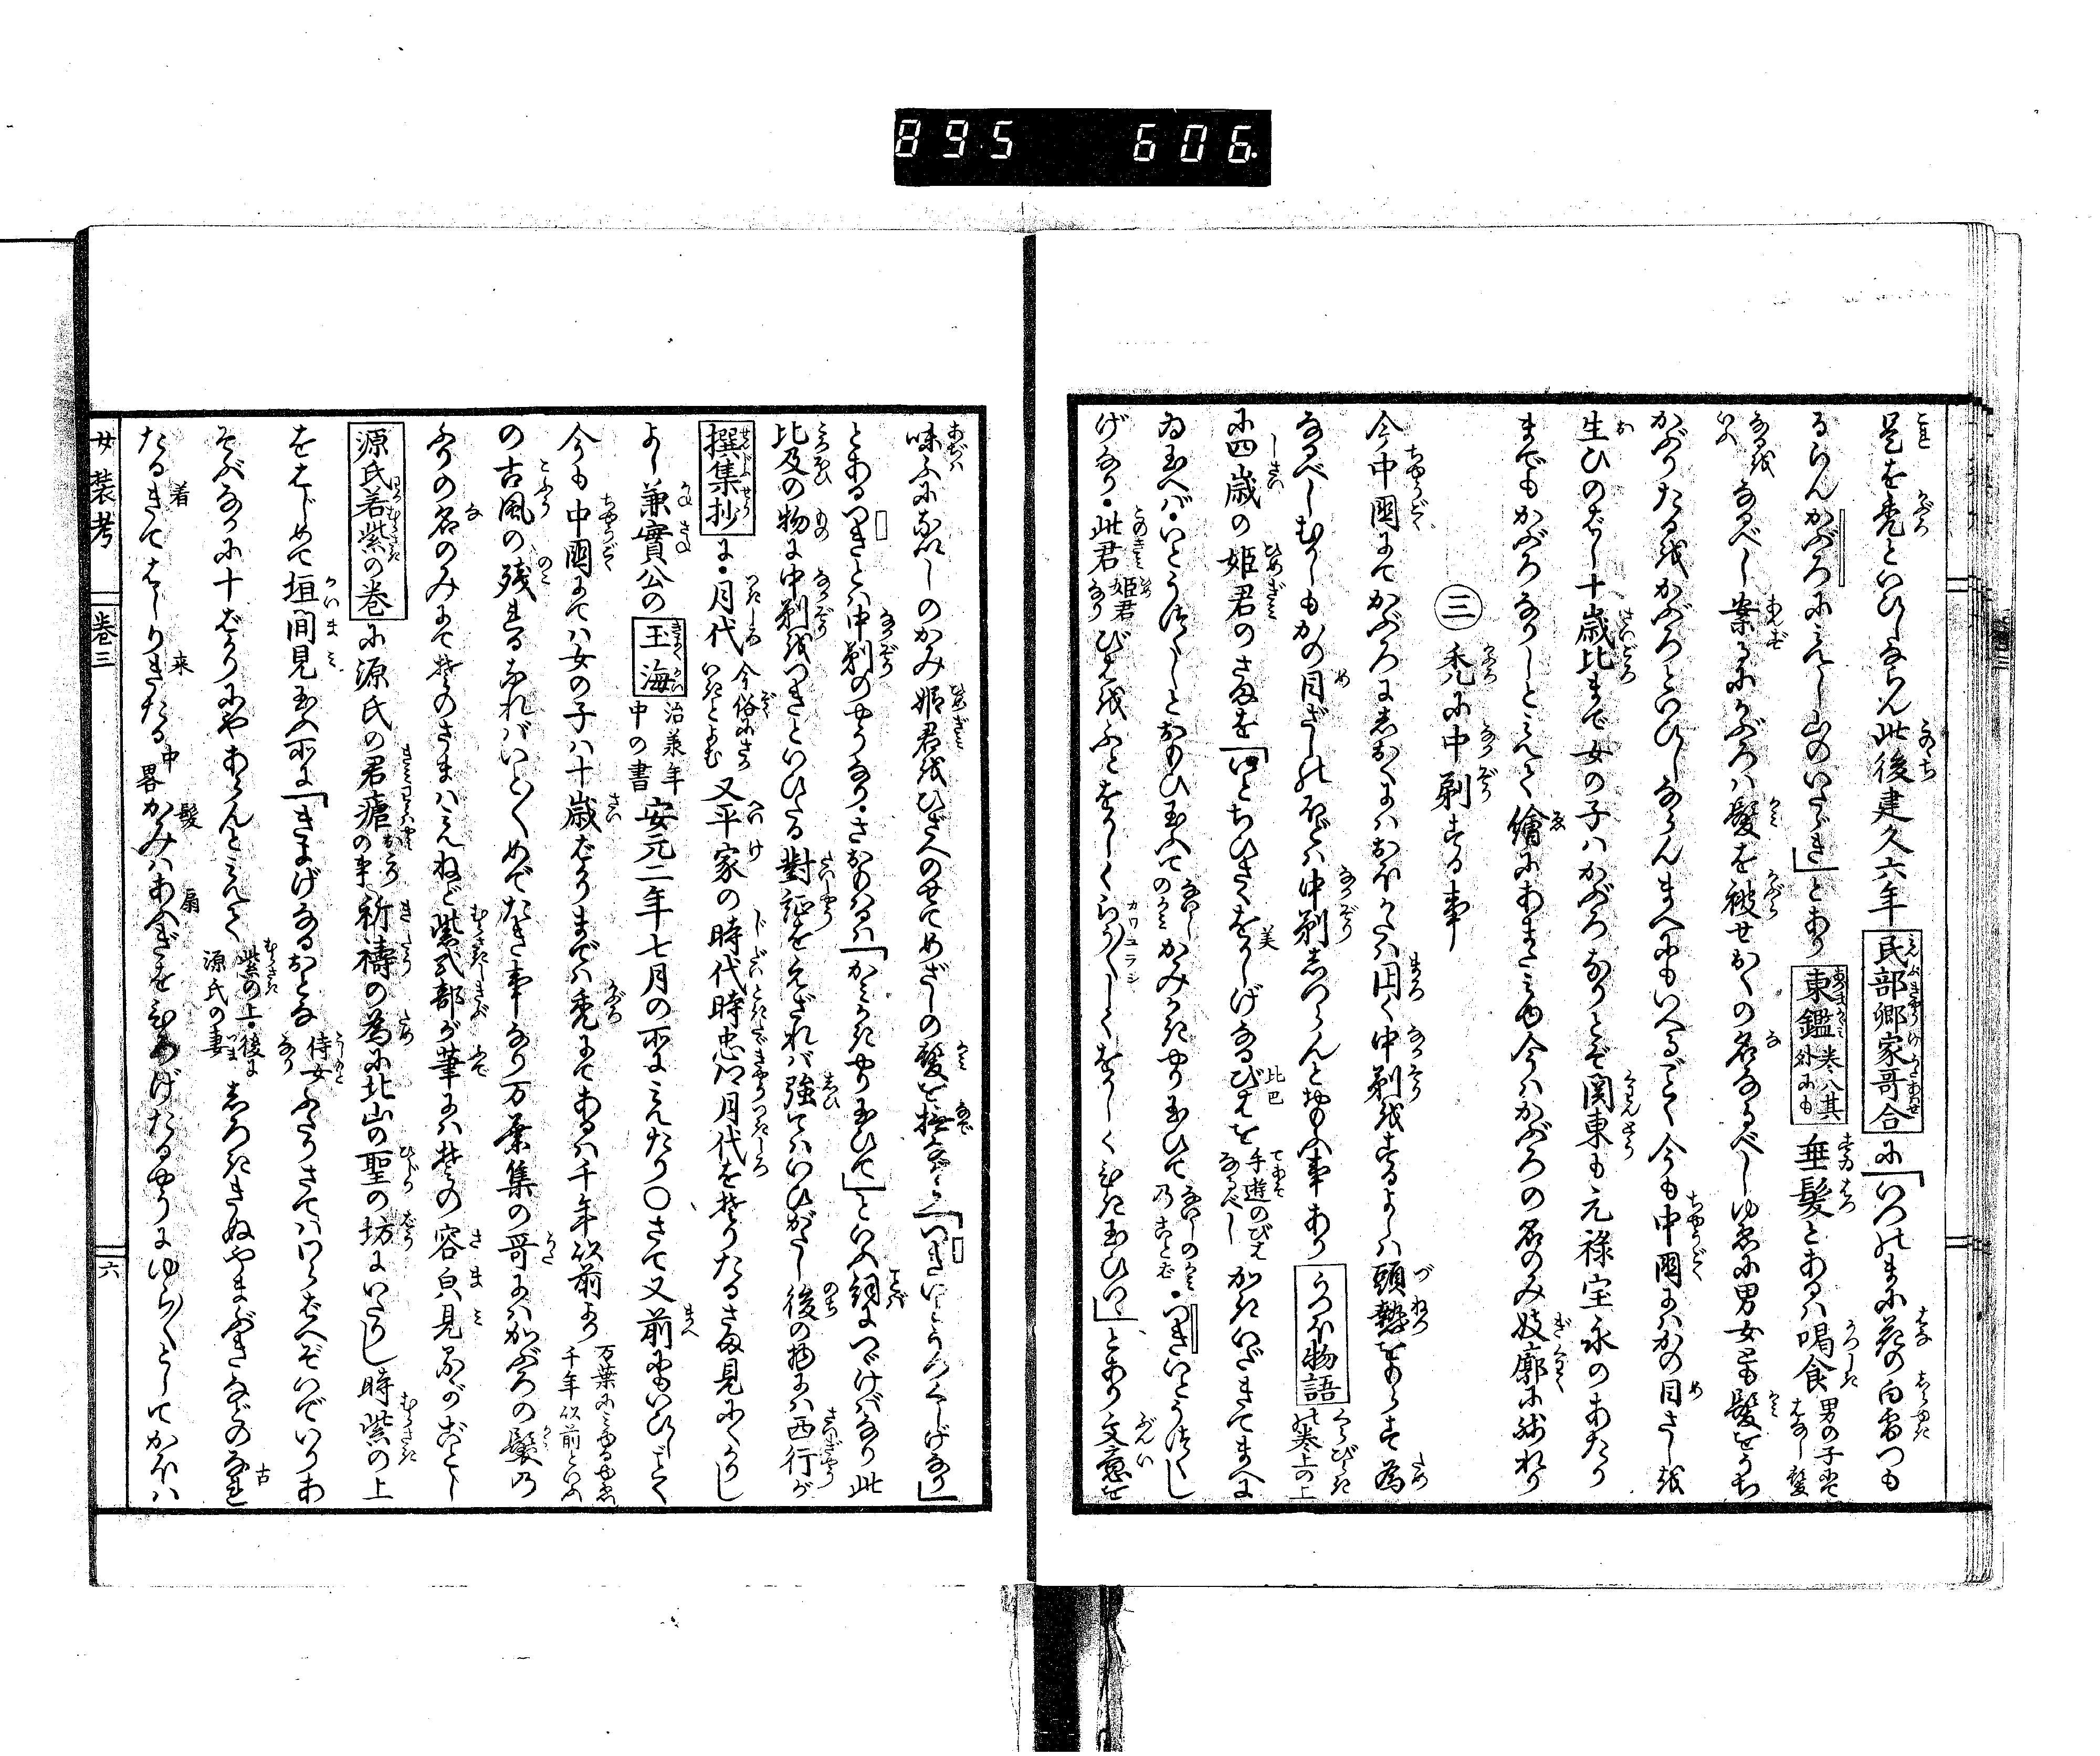 895 606
是を禿といひしならん此後建久六年民部卿家哥合に「いつのまに花の白雪つも
るらんかぶろにみえし山のいたゞき」とあり東鑑巻八其外にも垂髪とあるハ喝食男の子にてはなし髪
なるをいふなるべし案るにかぶろハ髪を被せおくの名なるべしゆゑに男女とも髪をうち
かぶりたるをかぶろといひしならんまへにもいへるごとく今も中国にハかの目さしを
生ひのばし十歳比まで女の子ハかぶろなりとぞ関東も元禄宝永のあたり
までもかぶろなりしとみえて繪にあまたみゆ今ハかぶろの名のみ妓廓に残れり
三 禿に中剃する事
今中国にてかぶろにしおくにハおほかたハ円く中剃をするよしハ頭熱をもらす為
なるべしむかしもかの目ざしのほどハ中剃しつらんとおもふ事ありうつほ物語の巻上の上
に四歳の姫君のさまを「いとちひさくをかしげなるびはを手遊のびはなるべしかきいだきてまへに
ゐ玉へバ・いとうつくしとおもひ玉ふてかみかきやり玉ひて・つきいとうつくし
げなり・此君姫君なりびはをふとをかしくらう〳〵しくをかしくひき玉ひつ」とあり文意を
味ふになでしのかみ姫君をひざへのせてめざしの髪を撫玉へバ「つきいとうつくしげなり」
とあるつきとハ中剃のやうなり・さおもハるゝハ「かミかきやり玉ひて」といふ詞につゞけバなり此
比及の物に中剃をつきといひたる對証をえざれバ強てハいひがたし後の物にハ西行が
撰集抄に・月代今俗にさかいきとよむ又平家の時代時忠卿月代をそりたるさま見にくかりし
よし兼實公の玉海治兼年中の書安元二年七月の所にみえたり〇さて又前にもいひしごとく
今も中国にてハ女の子ハ十歳ばかりまでハ禿にてあるハ千年以前より万葉にみゆるゆゑ千年以前といふ
の古風の残れるなれバいと〳〵めでたき事なり万葉集の哥にハかぶろの髪の
ふりの名のみにて其のさまハみえねど紫式部が筆にハ其の容貌見るがごとし
源氏若紫の巻に源氏の君瘧の事祈禱の為に北山の聖の坊にいたりし時紫の上
をはじめて垣間見玉ふ所に「きよげなるおとな侍女なりふたりさてハわらはべぞいでいりあ
そぶなかに十ばかりにやあらんとみえて紫の上・後に源氏の妻しろききぬやまぶきなどのなれ
たるきてはしりきたる中畧かみハあふぎをひろげたるやうにゆら〳〵としてかほハ
女装考 巻三 六